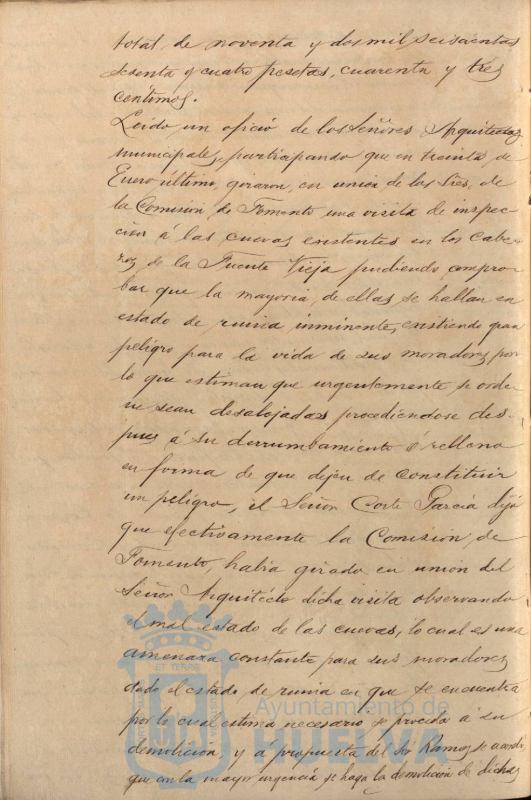 total, de noventa y dos mil seiscientas
sesenta y cuatro pesetas, cuarenta y tres
centimos.
Leido un oficio de los Señores Arquitectos
municipales, participando que en treinta de
Enero último, giraron, en union de los Sres. de
la Comision de Fomento una visita de inspec
cion á las cuevas existentes en los Cabe-
zos de la Fuente Vieja pudiendo compro-
bar que la mayoria de ellas se hallan en
estado de ruina inminente, existiendo gran
peligro para la vida de sus moradores, por
lo que estiman que urgentemente se orde-
ne sean desalojadas procediendose des-
pues á su derrumbamiento ó relleno
en forma de que dejen de constituir
un peligro, el Señor Corte Garcia dijo
que efectivamente la Comision de
Fomento, habia girado en union del
Señor Arquitecto dicha visita observando
el mal estado de las cuevas, lo cual es una
amenaza constante para sus moradores
dado el estado de ruina en que se encuentra
por lo cual estima necesario se proceda á su
demolicion, y á propuesta del Sr Ramos se acordó
que con la mayor urgencia se haga la demolicion de dichas
ET TERRE
Ayuntamiento de
HUELVA